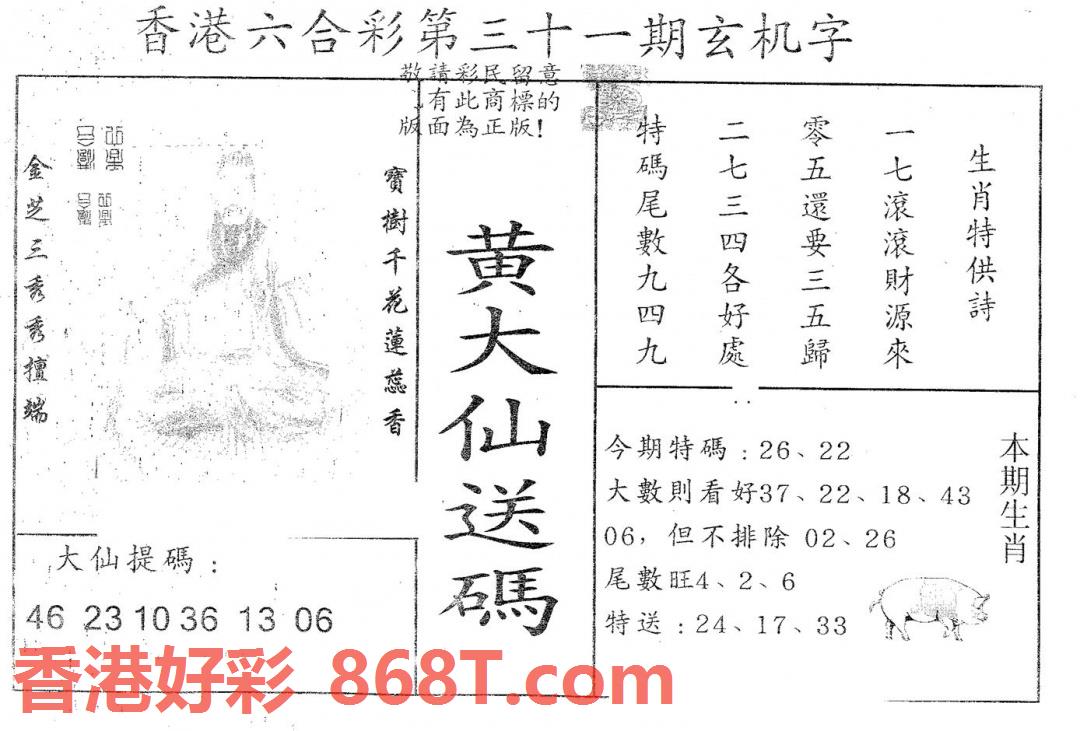 香港六合彩第三十一期玄机字
敬請彩民留意
有此商標的
版面為正版!
金芝三秀秀擅端
寶樹千花蓮蕊香
黄大仙送碼
生肖特供詩
一七滾滾財源來
零五還要三五歸
二七三四各好處
特碼尾數九四九
本期生肖
今期特碼:26、22
大數則看好37、22、18、43
06,但不排除 02、26
尾數旺4、2、6
特送:24、17、33
大仙提碼:
46 23 10 36 13 06
香港好彩 868T.com